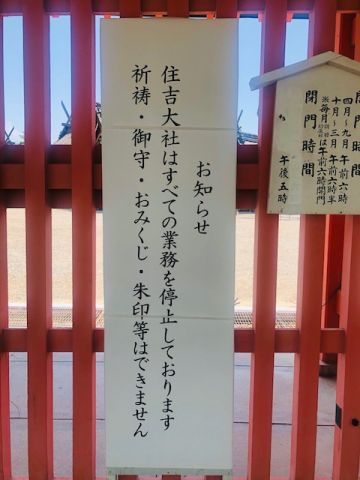 お知らせ
住吉大社はすべての業務を停止しております
祈祷・御守・おみくじ・朱印等はできません
開門時間
四月〜九月 午前六時
十月〜三月 午前六時半
は午前六時開門
閉門時間
午後五時